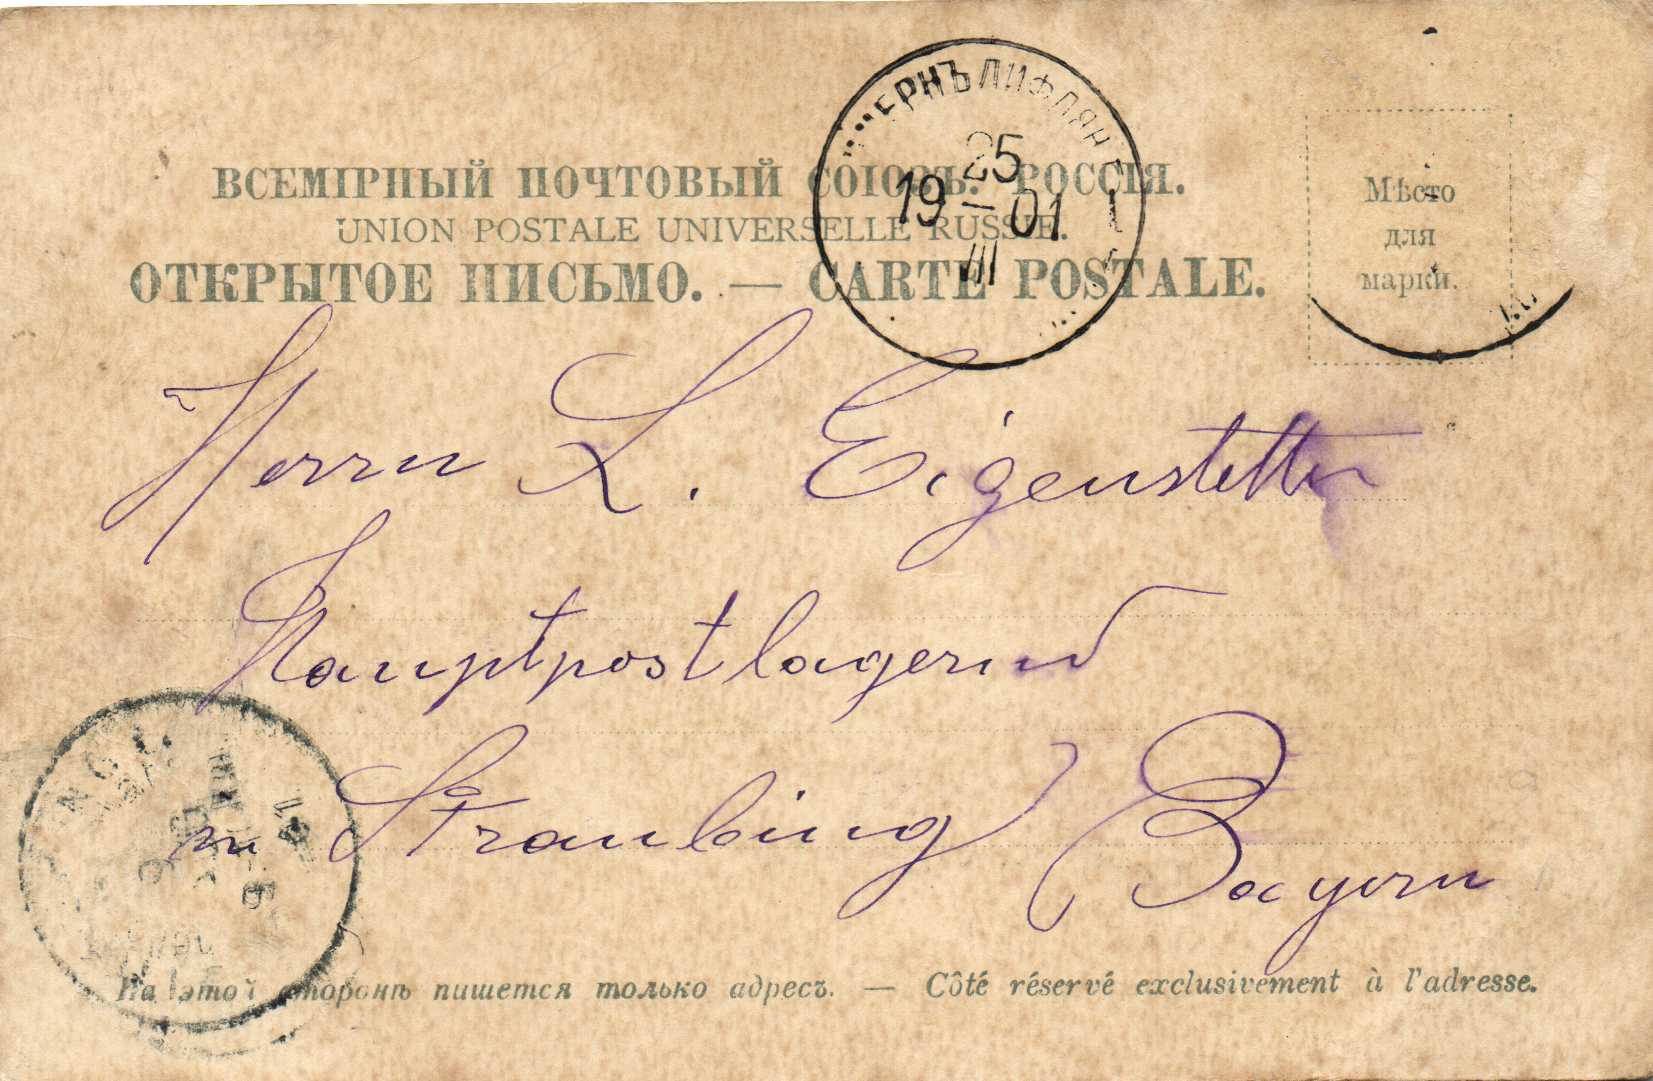 ВСЕМІРНЫЙ ПОЧТОВЫЙ СОЮЗЪ. РОССІЯ.
UNION POSTALE UNIVERSELLE RUSSIE.
ОТКРЫТОЕ ПИСЬМО. — CARTE POSTALE.
ЛИФЛЯН
25
19 — 01
III
1
Мѣсто
для
марки.
Herrn L. Eigenstetter
Hauptpostlagernd
in Straubing
Bayern
На этой сторонѣ пишется только адресъ. — Côté réservé exclusivement à l'adresse.